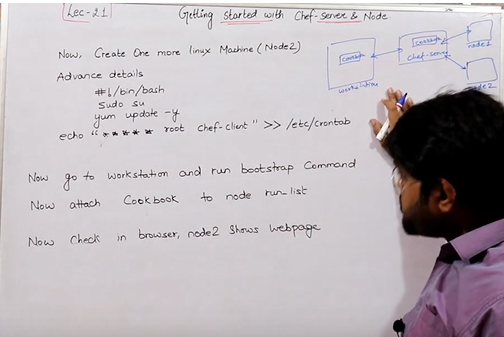 Lec-21
Getting Started with Chef-Server & Node
Now, Create One more linux Machine (Node2)
Advance details
#!/bin/bash
sudo su
yum update -y
echo "* * * * * root chef-client" >> /etc/crontab
Now go to workstation and run bootstrap Command
Now attach Cookbook to node run-list
Now Check in browser, node2 Shows webpage
chef-server
node1
node2